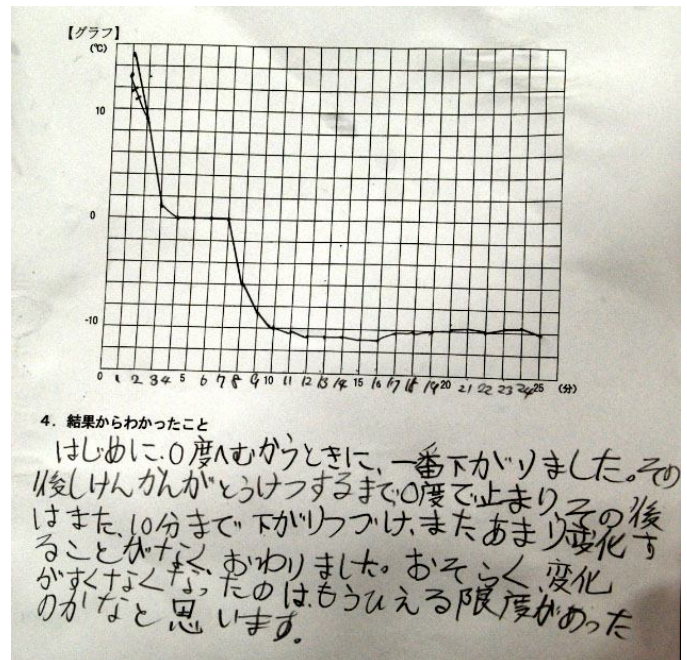 【グラフ】
(℃)
10
0
-10
0 1 2 3 4 5 6 7 8 9 10 11 12 13 14 15 16 17 18 19 20 21 22 23 24 25 (分)
4. 結果からわかったこと
はじめに、0度へむかうときに、一番下がりました。その
後しけんかんがとうけつするまで、0度で止まり、その後
はまた、10分まで下がりつづけ、また、あまり変化す
ることがなく、おわりました。おそらく、変化
がすくなくなったのは、もうひえる限度があった
のかなと思います。